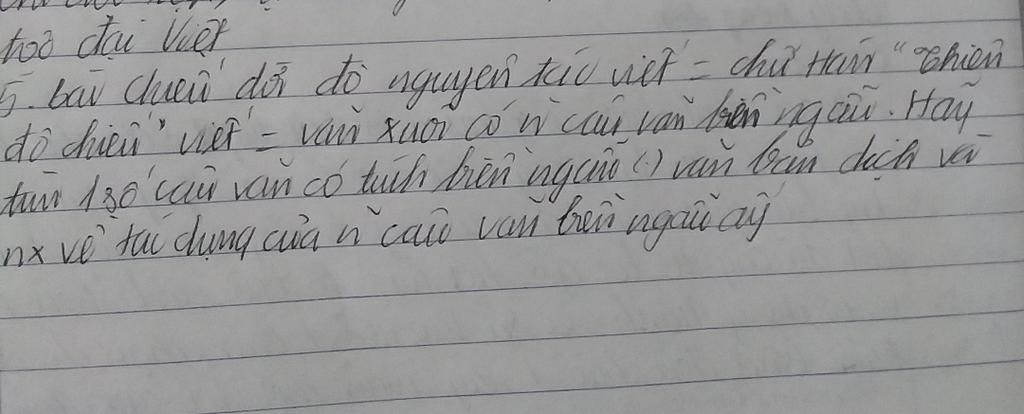 toà đại Việt
5. bài chiếu dời đô nguyên tác viết = chữ Hán "Thiên
đô chiếu" viết = văn xuôi có n~ câu văn biền ngẫu. Hãy
tìm 1 số câu văn có tính biền ngẫu (.) văn bản dịch và
nx về tác dụng của n~ câu văn biền ngẫu ấy